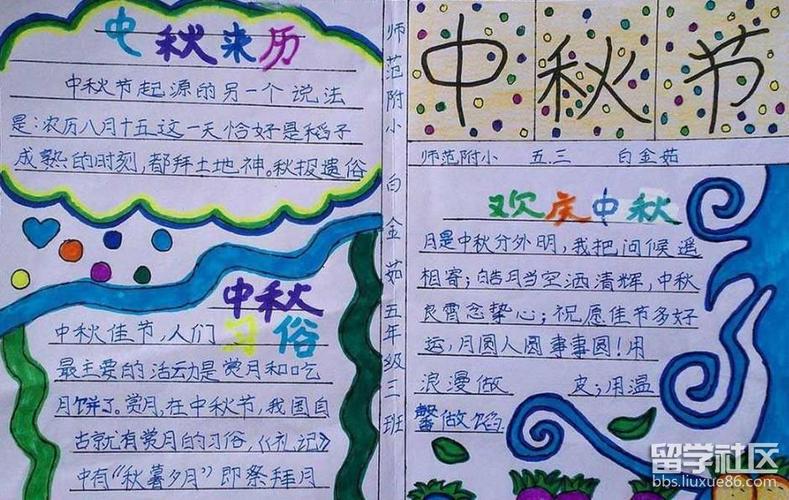 中秋来历
中秋节起源的另一个说法
是:农历八月十五这一天恰好是稻子
成熟的时刻,都拜土地神。秋报遗俗
中秋
习俗
中秋佳节,人们
最主要的活动是赏月和吃
月饼了。赏月,在中秋节,我国自
古就有赏月的习俗,《礼记》
中有“秋暮夕月”即祭拜月
师范附小 白金茹 五年级三班
中秋节
师范附小 五.三 白金茹
欢庆中秋
月是中秋分外明,我把问候遥
相寄;皓月当空洒清辉,中秋
良宵念挚心;祝愿佳节多好
运,月圆人圆事事圆!用
浪漫做 皮;用温
馨做馅
留学社区
bbs.liuxue86.com